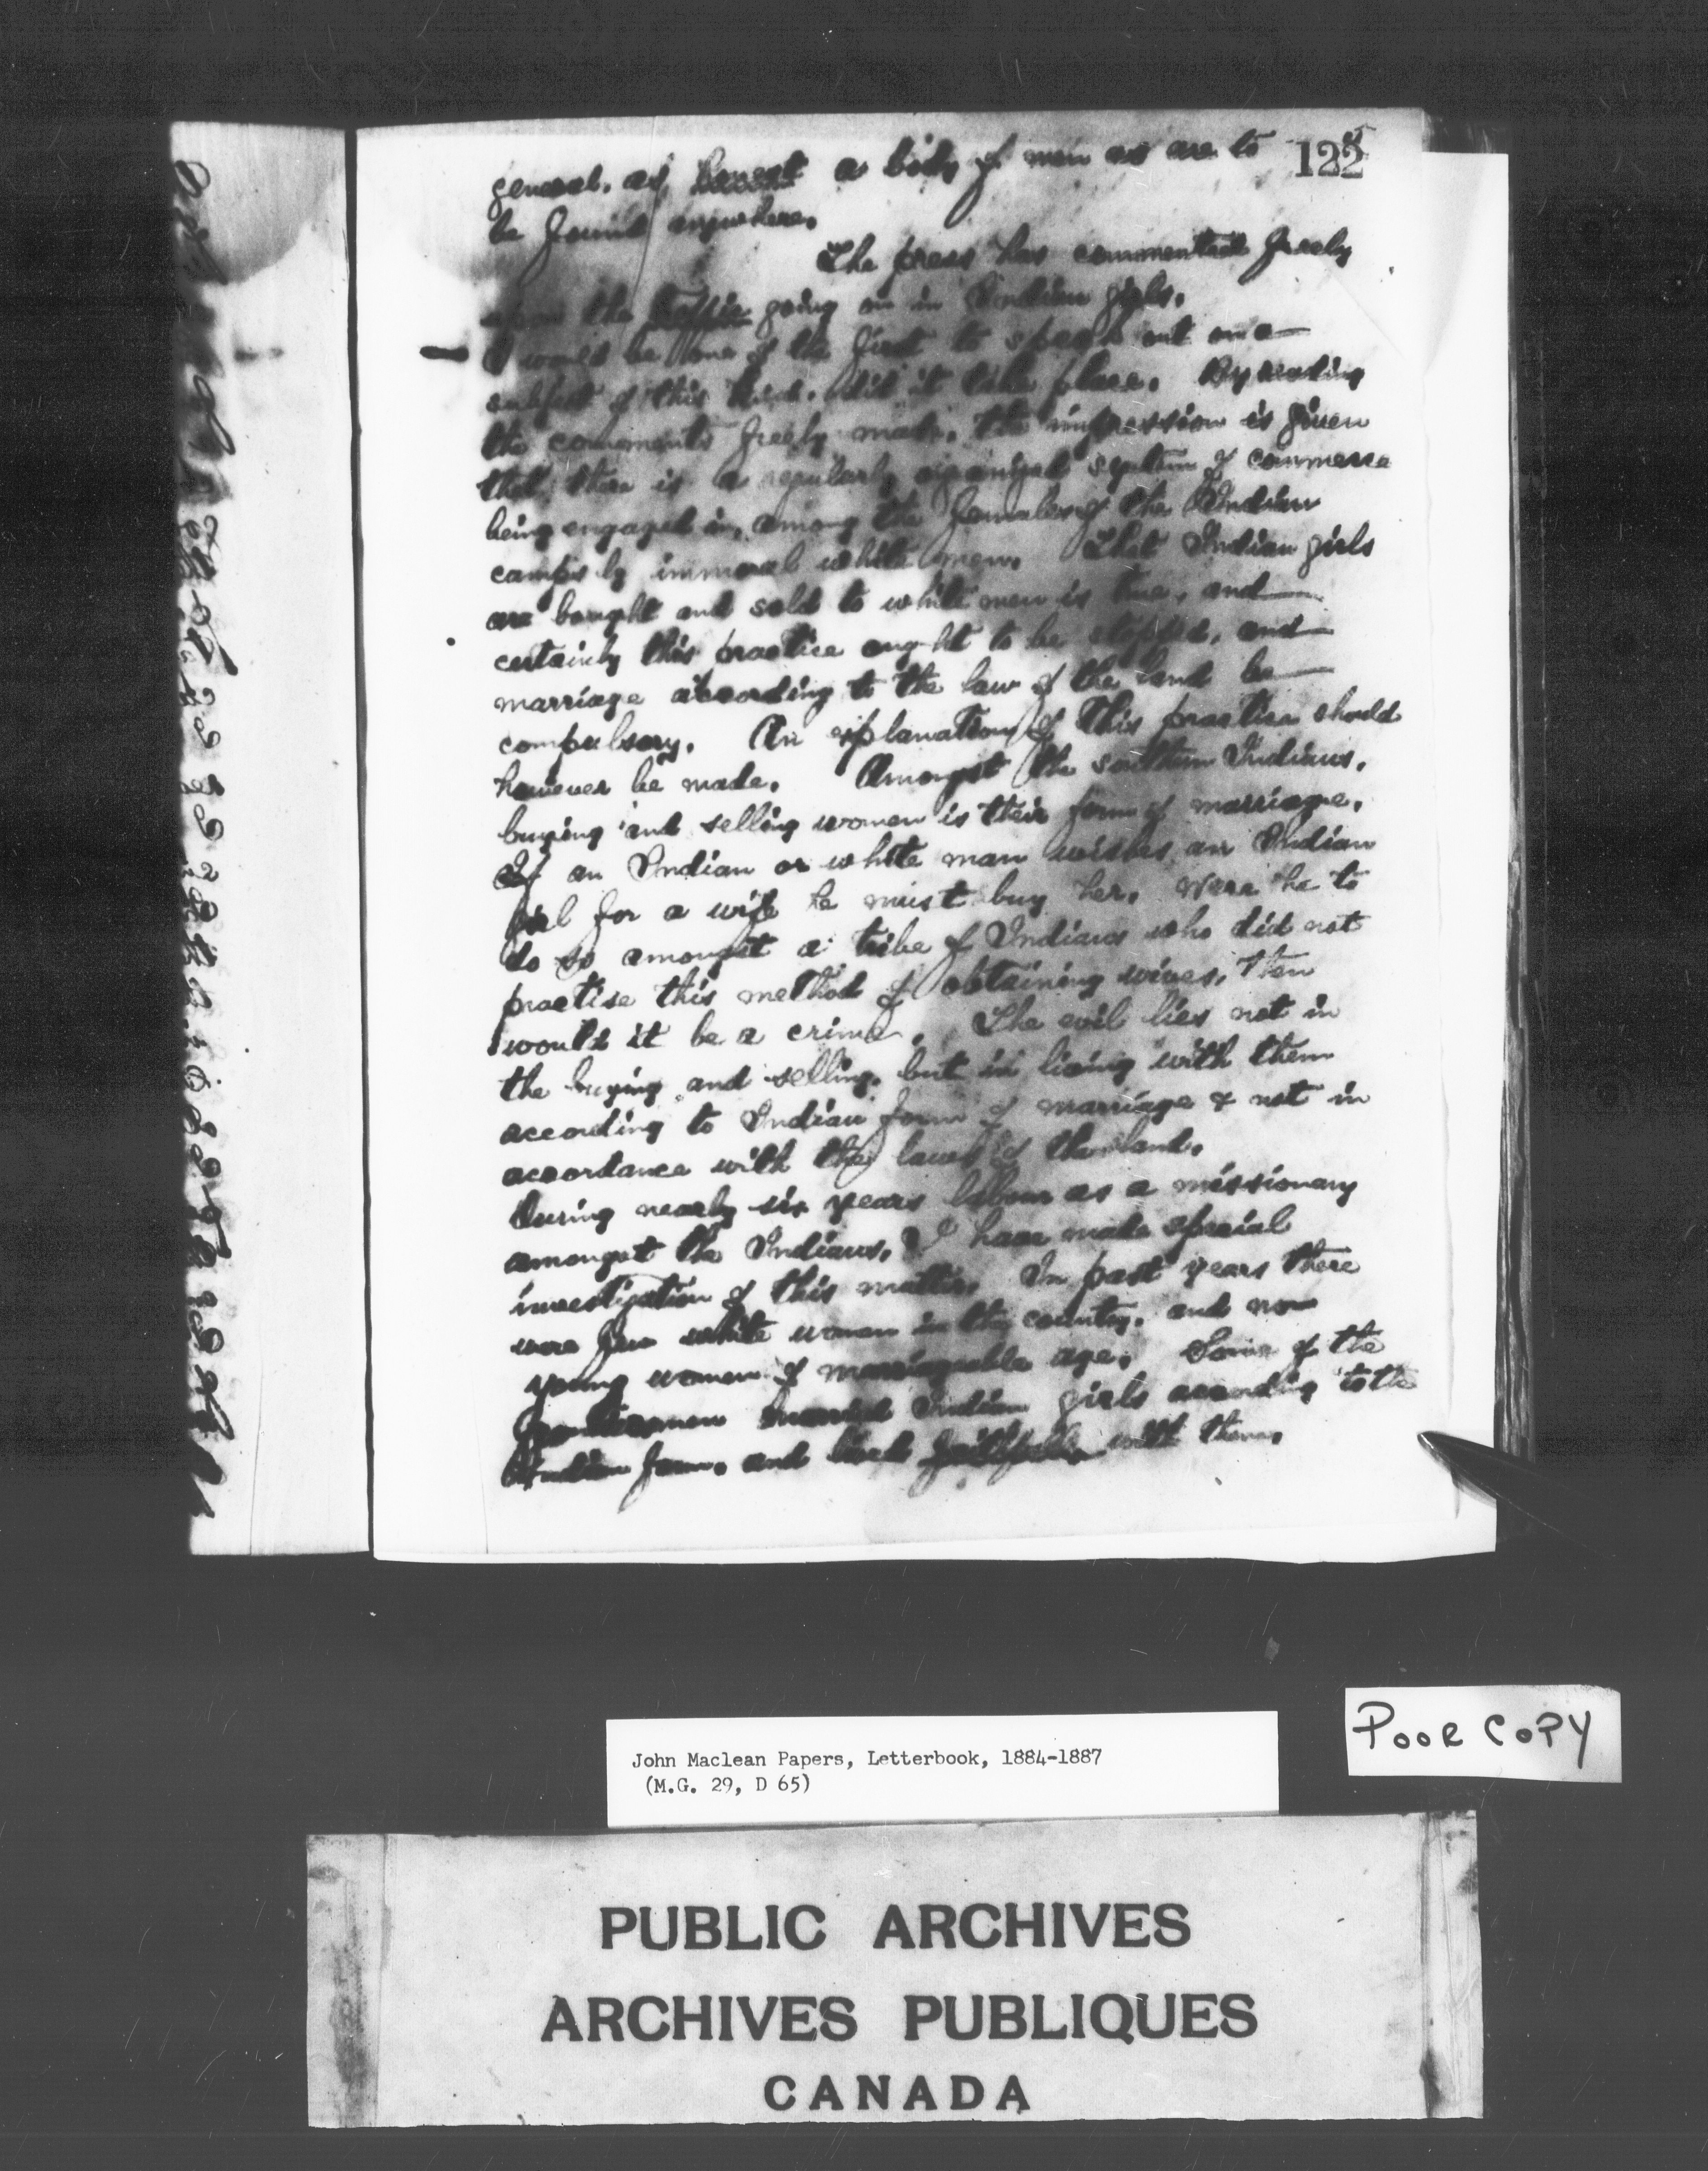 122
5
general, as honest a body of men as are to
be found anywhere.
The press has commented freely
upon the traffic going on in Indian girls.
I would be one of the first to speak out on a
subject of this kind, did it take place. By reading
the comments freely made, the impression is given
that there is a regularly organized system of commerce
being engaged in, among the females of the Indian
camps by immoral white men. That Indian girls
are bought and sold to white men is true, and
certainly this practice ought to be stopped, and
marriage according to the law of the land be
compulsory. An explanation of this practice should
however be made. Amongst the southern Indians,
buying and selling women is their form of marriage.
If an Indian or white man wishes an Indian
girl for a wife he must buy her. Were he to
do so amongst a tribe of Indians who did not
practise this method of obtaining wives, then
would it be a crime. The evil lies not in
the buying and selling, but in living with them
according to Indian form of marriage & not in
accordance with the laws of the land.
During nearly six years labour as a missionary
amongst the Indians, I have made special
investigation of this matter. In past years there
were few white women in the country, and no
young women of marriageable age. Some of the
married Indian girls according to the
Indian form, and lived faithfully with them.
John Maclean Papers, Letterbook, 1884-1887
(M.G. 29, D 65)
POOR COPY
PUBLIC ARCHIVES
ARCHIVES PUBLIQUES
CANADA